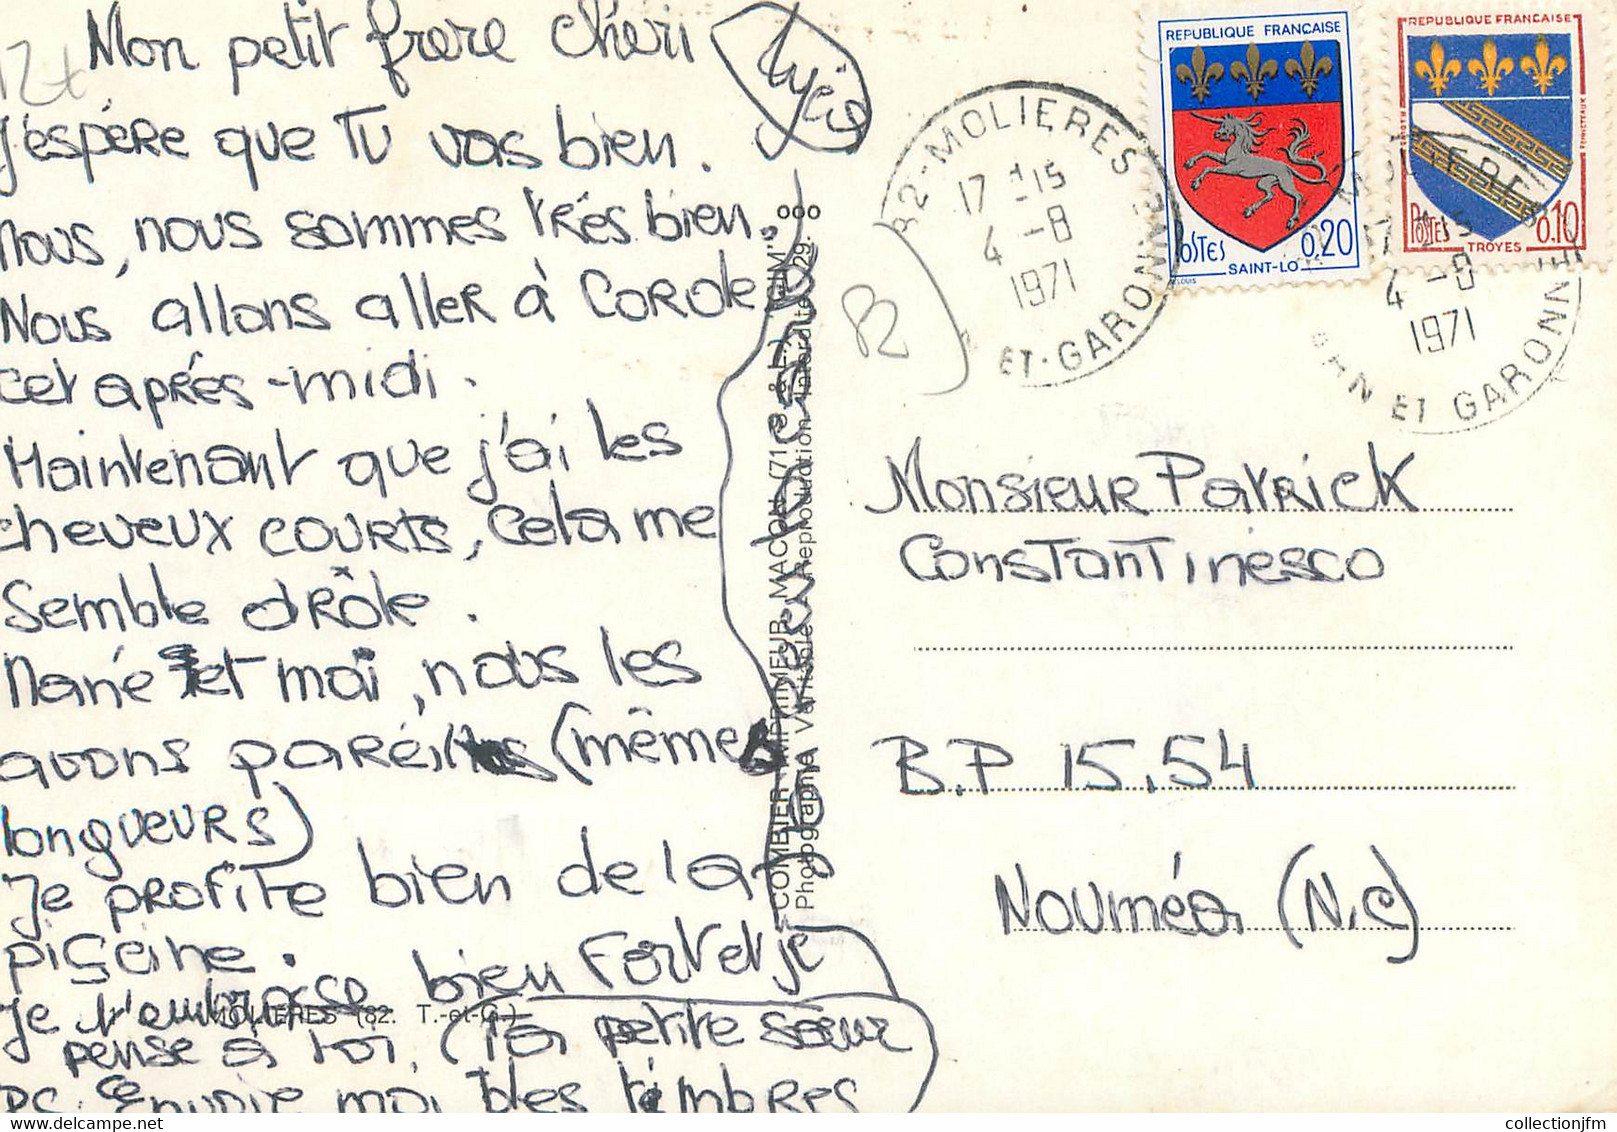 Mon petit frere chéri
J'éspére que Tu vas bien.
Nous, nous sommes trés bien.
Nous allons aller à Corole
cet aprés-midi.
Maintenant que j'ai les
cheveux courts, cela me
semble drôle.
Nané et moi, nous les
avons paréils (mêmes
longueurs)
Je profite bien de la
piscine.
Je t'embrasse bien Fort et je
pense à toi. (Ta petite sœur
PS: Envoie moi des timbres
MOLIERES (82. T.-et-G.)
COMBIER IMPRIMEUR MACON (71 S.&L.) "CIM"
Photographie Véritable - Reproduction Interdite 29
82-MOLIERES
17 H-15
4 -8
1971
ET-GARONNE
REPUBLIQUE FRANÇAISE
POSTES 0,20
SAINT-LO
REPUBLIQUE FRANÇAISE
POSTES 0.10
TROYES
4 -8
1971
ET GARONNE
82
Monsieur Patrick
Constantinesco
B.P 15.54
Nouméa (N.C)
collectionjfm